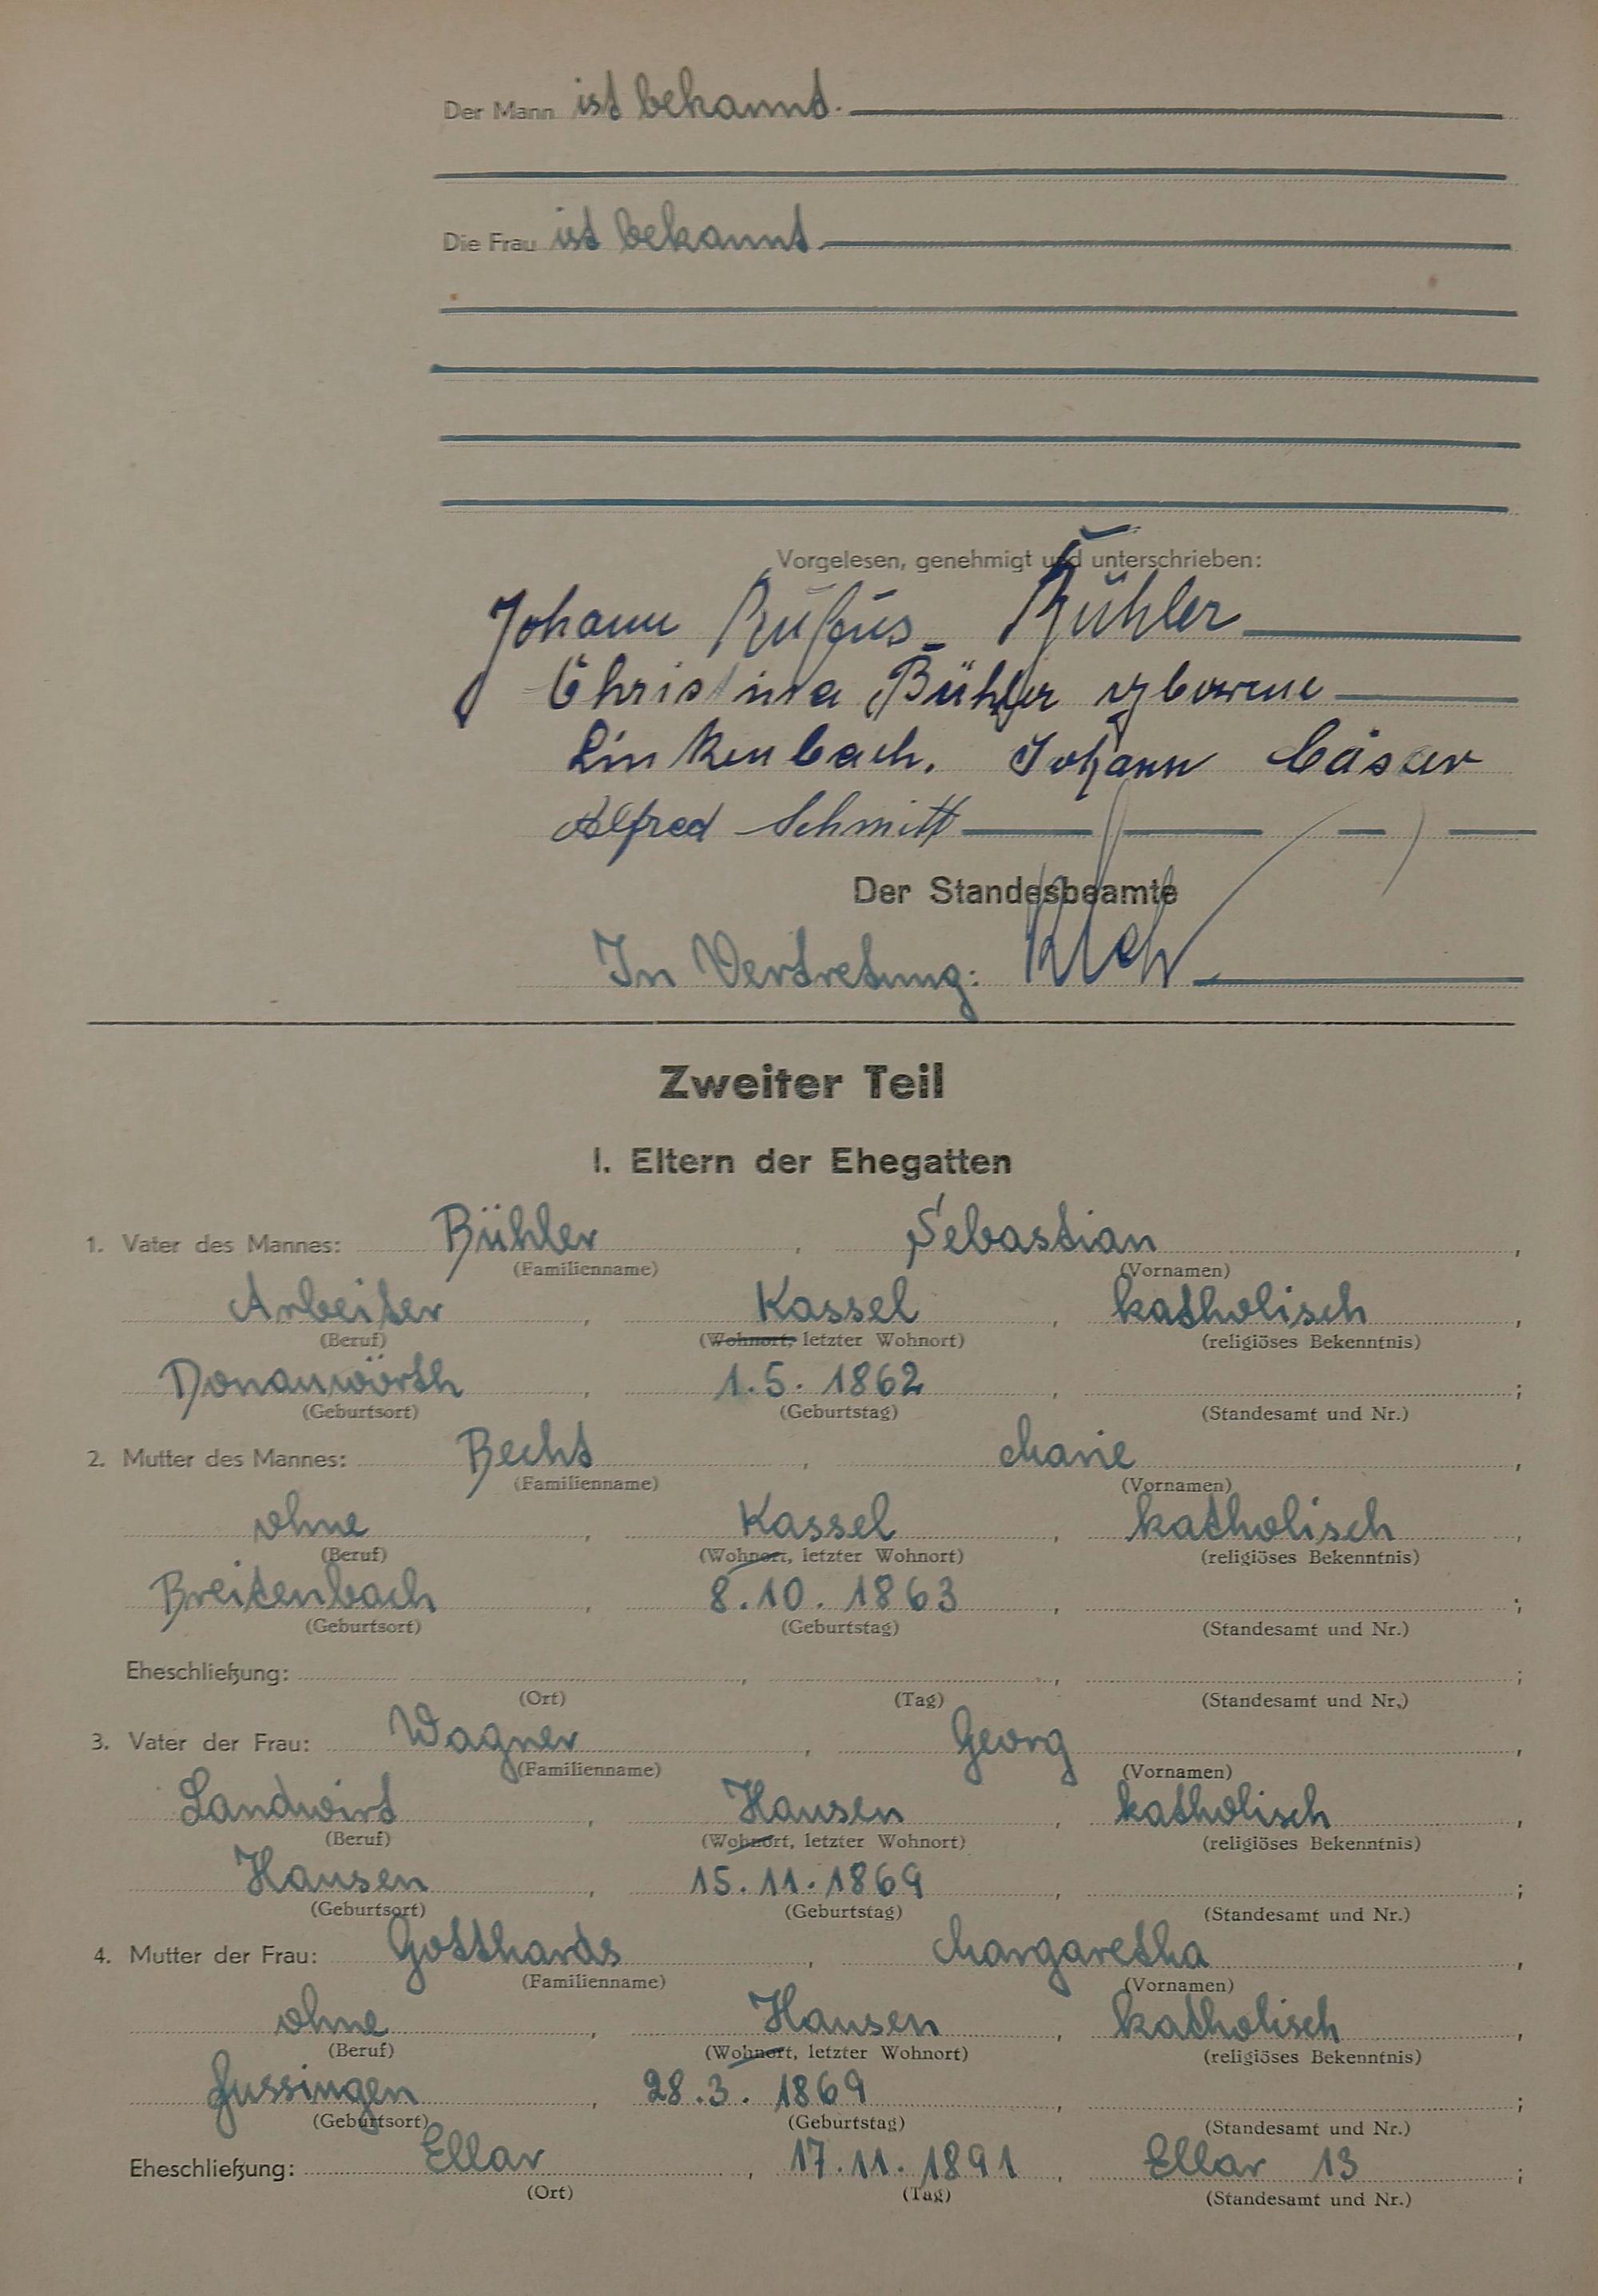 Der Mann ist bekannt.
Die Frau ist bekannt
Vorgelesen, genehmigt und unterschrieben:
Johann Rufus Bühler
Christina Bühler geborene
Linkenbach. Johann Cäsar
Alfred Schmitt
Der Standesbeamte
In Vertretung:
Zweiter Teil
I. Eltern der Ehegatten
1. Vater des Mannes: Bühler, Sebastian,
(Familienname) (Vornamen)
Arbeiter, Kassel, katholisch,
(Beruf) (Wohnort, letzter Wohnort) (religiöses Bekenntnis)
Donauwörth, 1.5.1862, ;
(Geburtsort) (Geburtstag) (Standesamt und Nr.)
2. Mutter des Mannes: Becht, Marie,
(Familienname) (Vornamen)
ohne, Kassel, katholisch,
(Beruf) (Wohnort, letzter Wohnort) (religiöses Bekenntnis)
Breitenbach, 8.10.1863, ;
(Geburtsort) (Geburtstag) (Standesamt und Nr.)
Eheschließung: , , ;
(Ort) (Tag) (Standesamt und Nr.)
3. Vater der Frau: Wagner, Georg,
(Familienname) (Vornamen)
Landwirt, Hausen, katholisch,
(Beruf) (Wohnort, letzter Wohnort) (religiöses Bekenntnis)
Hausen, 15.11.1869, ;
(Geburtsort) (Geburtstag) (Standesamt und Nr.)
4. Mutter der Frau: Gotthards, Margaretha,
(Familienname) (Vornamen)
ohne, Hausen, katholisch,
(Beruf) (Wohnort, letzter Wohnort) (religiöses Bekenntnis)
Fussingen, 28.3.1869, ;
(Geburtsort) (Geburtstag) (Standesamt und Nr.)
Eheschließung: Ellar, 17.11.1891, Ellar 13;
(Ort) (Tag) (Standesamt und Nr.)